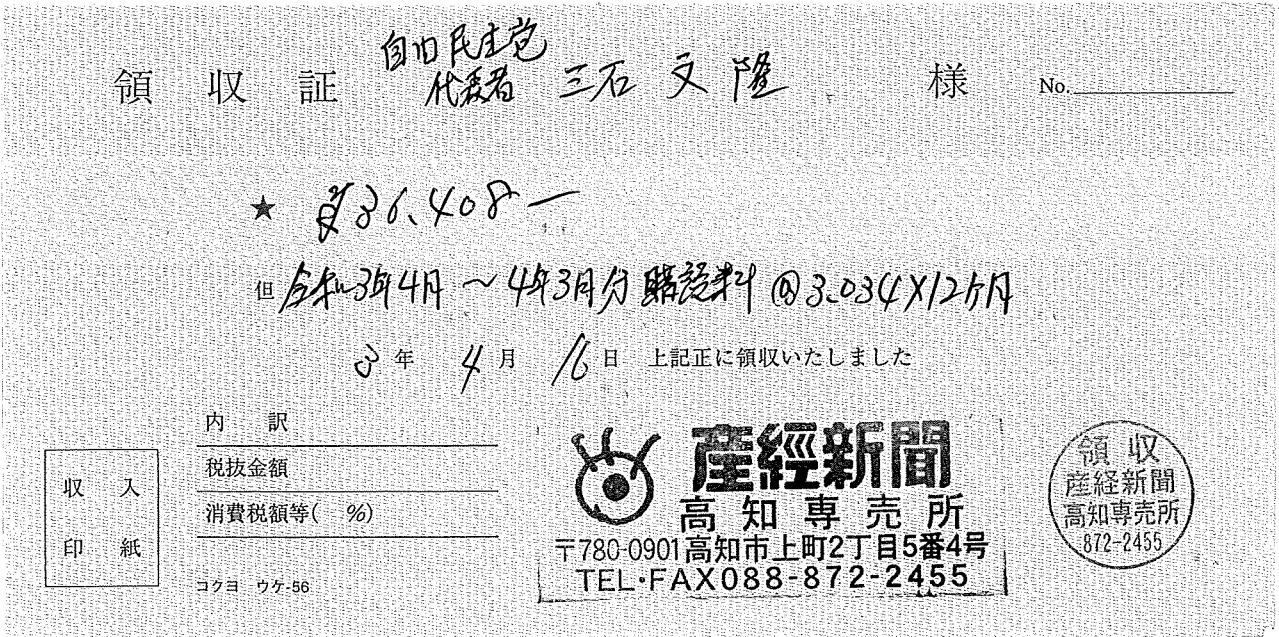 自由民主党
領収証 代表者 三石文隆 様 No.
★ ¥36,408―
但 令和3年4月〜4年3月分 購読料 @3.034×12ヶ月
3年 4月 16日 上記正に領収いたしました
内 訳
税抜金額
消費税額等( %)
収入
印紙
コクヨ ウケ-56
産經新聞
高知専売所
〒780-0901高知市上町2丁目5番4号
TEL・FAX088-872-2455
領収
産経新聞
高知専売所
872-2455